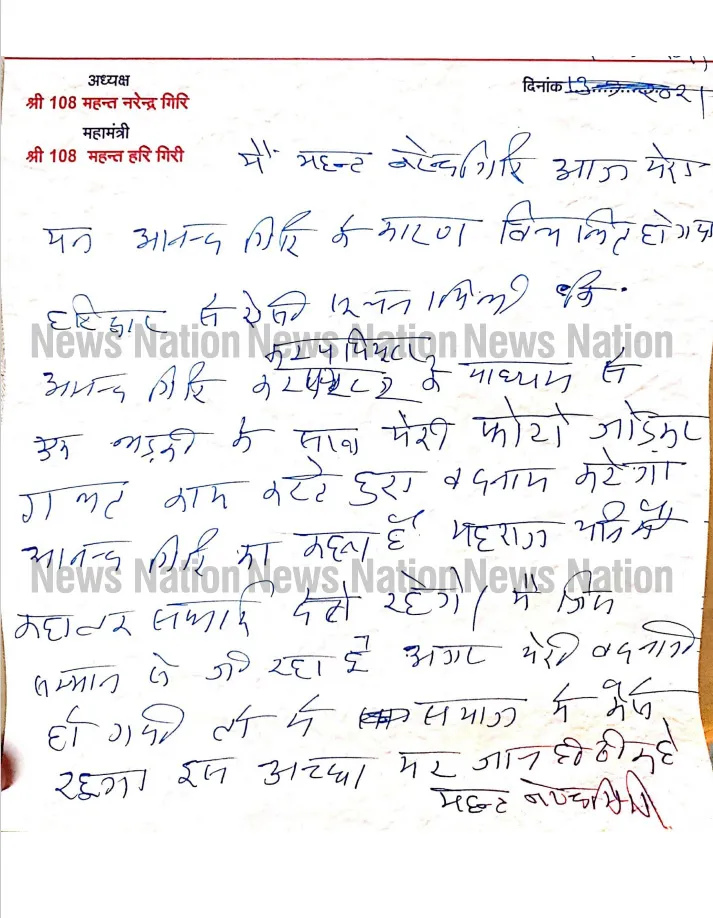 अध्यक्ष
श्री 108 महन्त नरेन्द्र गिरि
महामंत्री
श्री 108 महन्त हरि गिरी
दिनांक 2021
मैं महन्ट नरेन्द्र गिरि आज मेरा
मन आनन्द गिरि के कारण विचलित हो गया
हरिद्वार से ऐसी सूचना मिली कि
News Nation News Nation News Nation
कम्प्यूटर
आनन्द गिरि के माध्यम से
एक लड़की के साथ मेरी फोटो जोड़कर
गलट काम करटे हुए बदनाम करेगा
आनन्द गिरि का कहना है महराज यानि मैं
News Nation News Nation News Nation
कहा तक सफाई देते रहेगे। मैं जिस
सम्मान से जी रहा हूँ अगर मेरी बदनामी
हो गयी तो मैं समाज में कैसे
रहूगा इस अच्छा मर जाना ही ठीक है
महन्ट नरेन्द्र गिरी